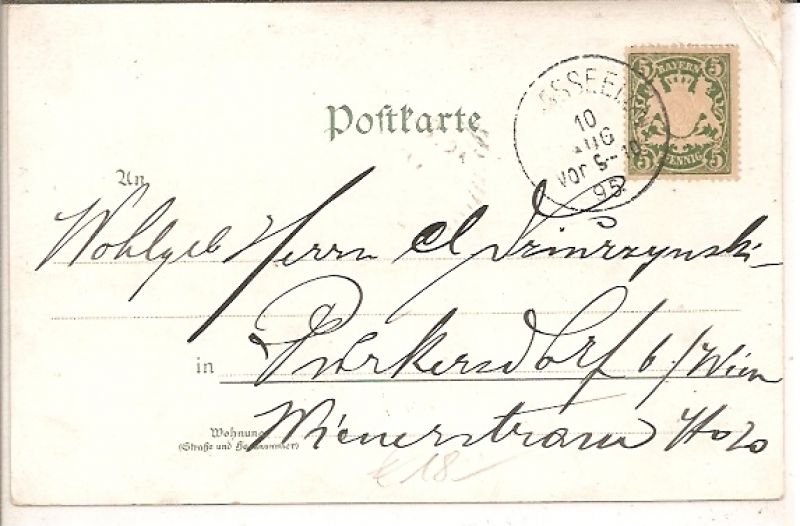 5 BAYERN 5
5 PFENNIG 5
10
AUG
Vor 9-10
95
Postkarte
An
Wohlgeb Herrn
in Purkersdorf b/Wien
Wohnung
(Straße und Hausnummer)
Wienerstrasse No 20
18